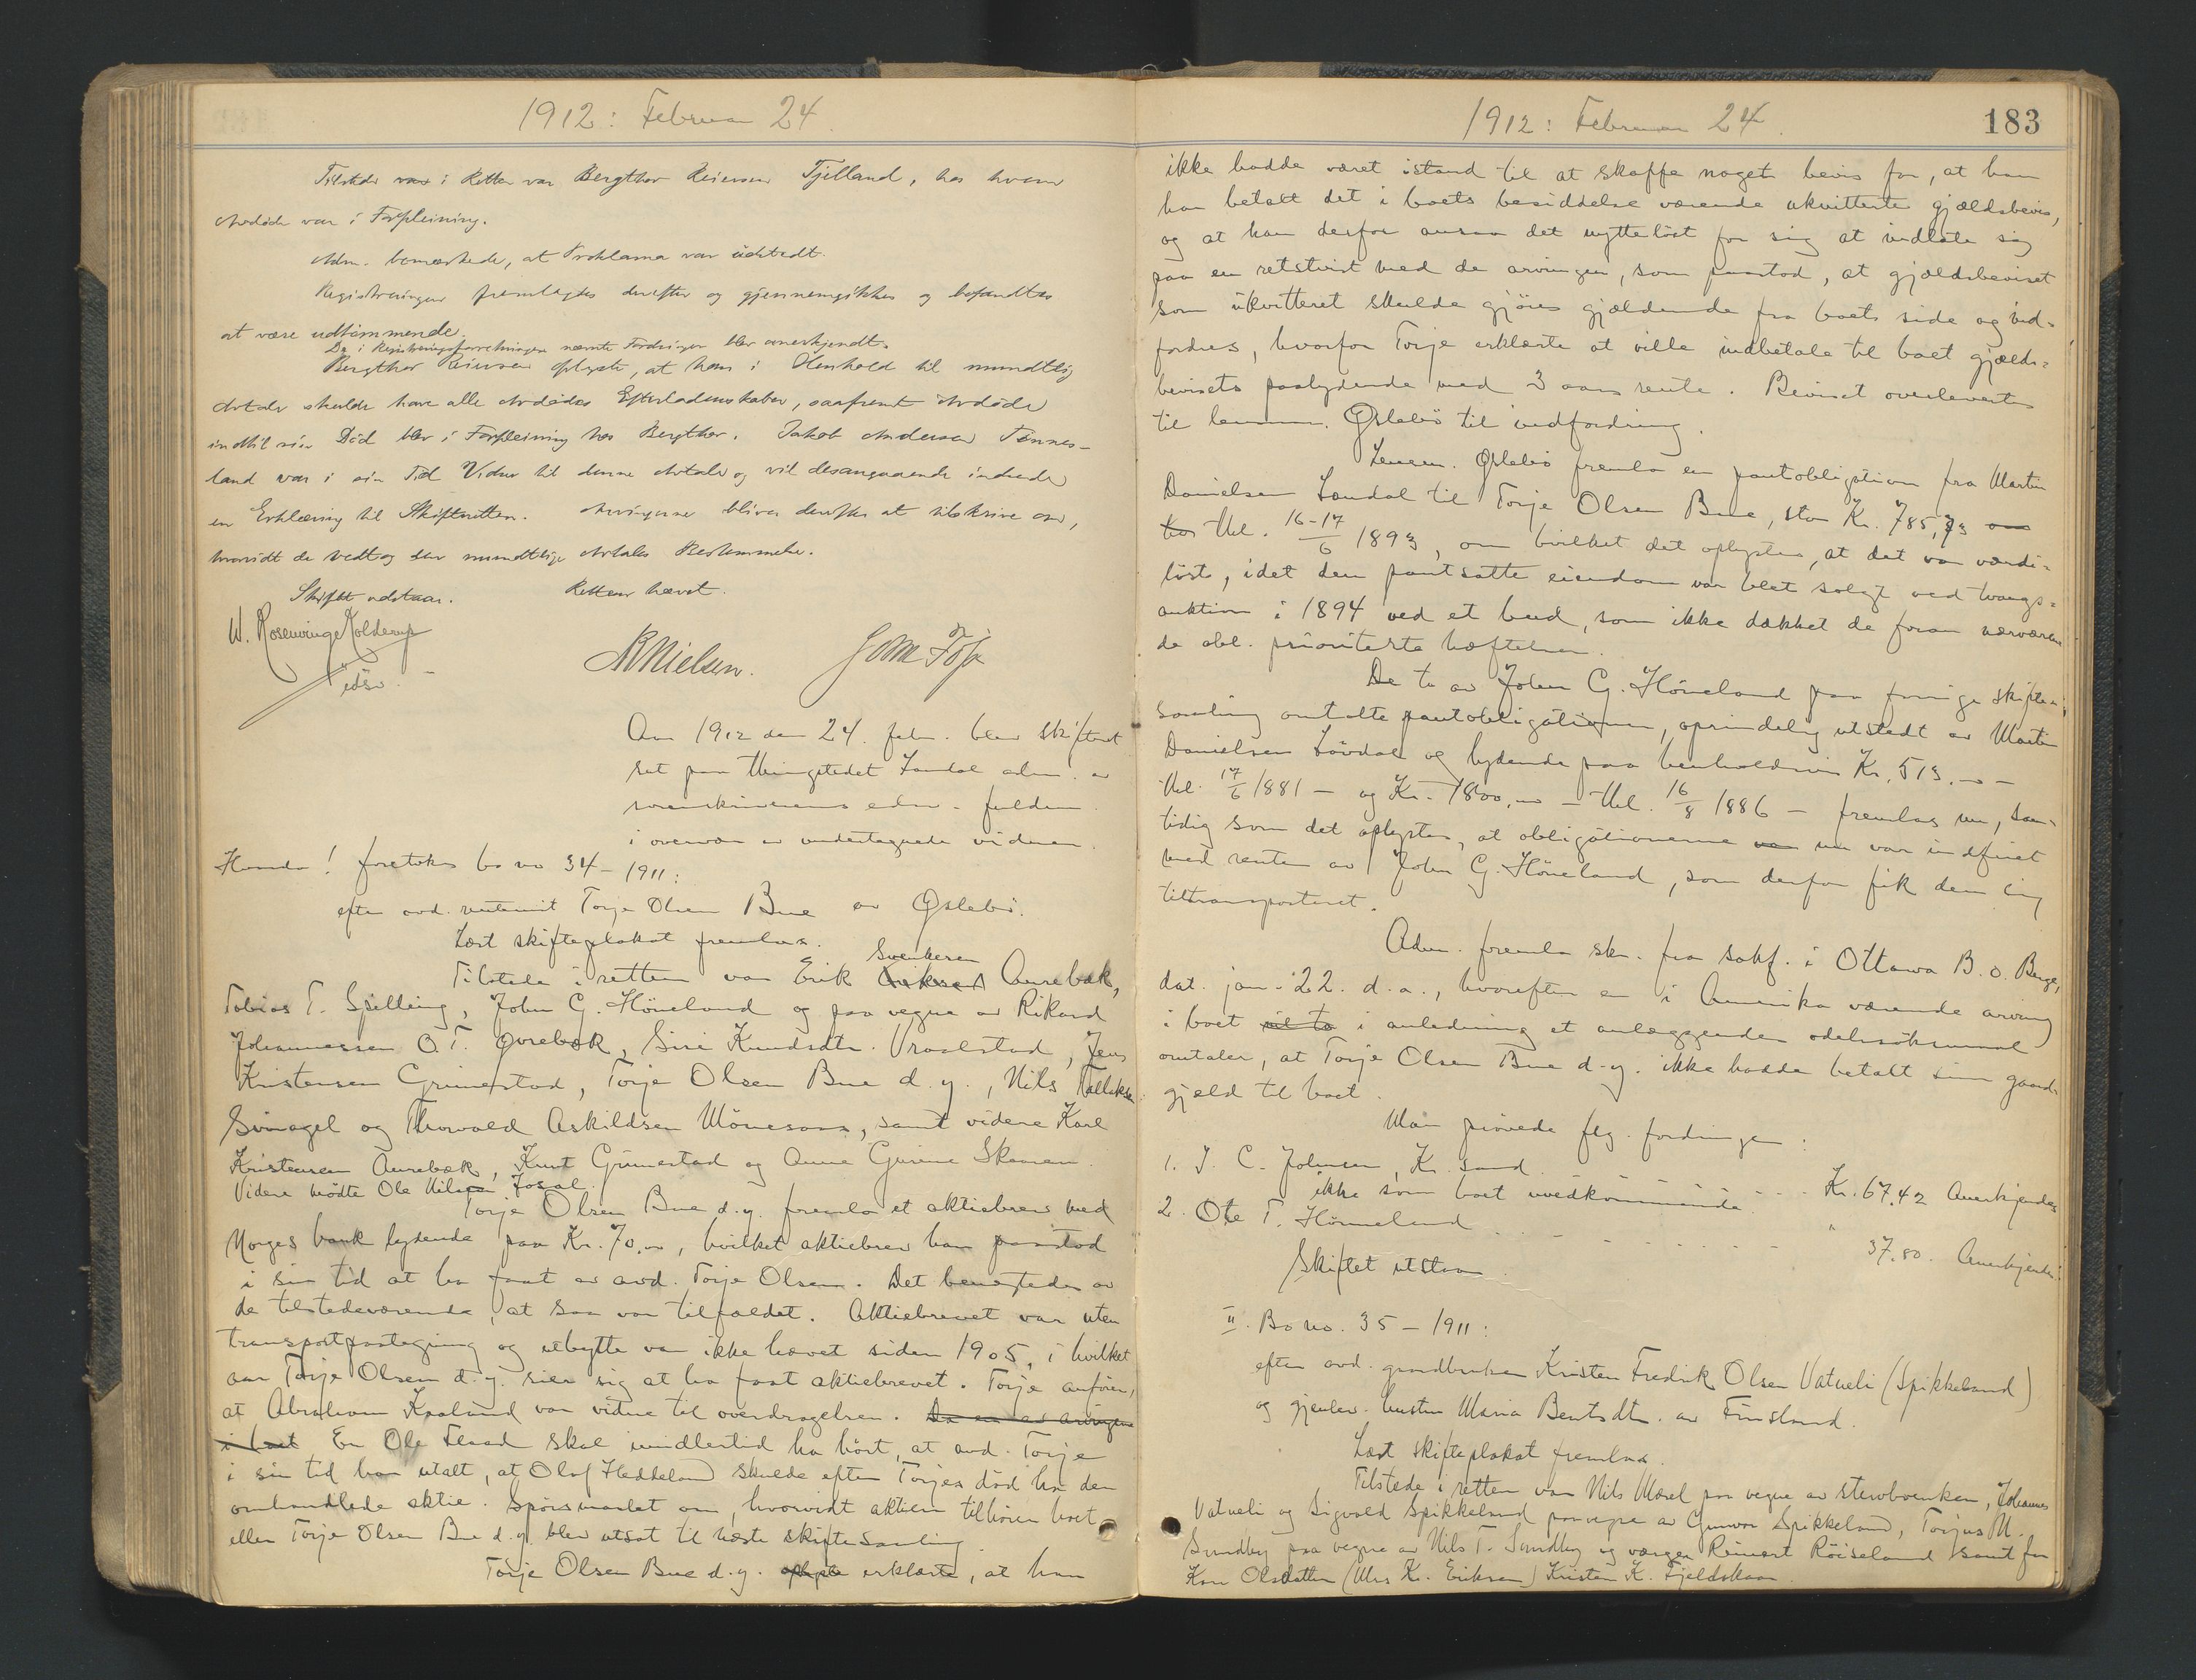 1912: Februar 24.
Tilstede var i Retten var Bergthor Reiersen Tjelland, hos hvem
Avdøde var i Forpleining.
Adm. bemærkede, at Proklama var udstedt.
Registreringen fremlagdes derefter og gjennemgikkes og befandtes
at være udtømmende.
De i Registreringsforretningen nævnte Fordringer blev anerkjendt.
Bergthor Reiersen oplyste, at han i Henhold til mundtlig
Avtale skulde have alle Avdødes Efterladenskaber, saafremt Avdøde
indtil sin Død blev i Forpleining hos Bergthor. Jakob Andersen Tønnes-
land var i sin Tid Vidne til denne Avtale og vil desangaaende indsende
en Erklæring til Skifteretten. Arvingerne bliver derefter at tilskrive om,
hvorvidt de vedtog den mundtlige Avtales Bestemmelse.
Skiftet udstaar. Retten hævet.
W. Rosenvinge Kolderup
edsv.
N Nielsen.
Aar 1912 den 24. febr. blev skifteret
sat paa thingstedet Laudal adm. av
sorenskriverens edsv. fuldm.
i overvær av undertegnede vidner.
Herunder! foretokes bo no 34 - 1911:
efter avd. rentenist Torje Olsen Bue av Øslebø.
Læst skifteplakat fremlaa.
Svenkesen
Tilstede i retten var Erik Eriksen Aurebæk,
Tobias T. Spilling, John G. Høneland og paa vegne av Rikard
Johannessen O. T. Øvrebæk, Siri Knudsdtr. Vraalstad, Jens
Kristensen Grimestad, Torje Olsen Bue d. y., Nils Tallaksen
Svinagel og Thorvald Askildsen Mønesaas, samt videre Karl
Kristensen Aurebæk, Knut Grimestad og Anne Gurine Skaaren.
Videre mødte Ole Nilsen Fosdal.
Torje Olsen Bue d. y. fremla et aktiebrev ved
Norges bank lydende paa Kr. 70.00, hvilket aktiebrev han paastod
i sin tid at ha faat av avd. Torje Olsen. Det benegtedes av
de tilstedeværende, at saa var tilfældet. Aktiebrevet var uten
transportpaategning og utbytte var ikke hævet siden 1905, i hvilket
aar Torje Olsen d. y. sier sig at ha faat aktiebrevet. Torje anfører,
at Abraham Kaaland var vidne til overdragelsen. Da en av arvingene
i boet En Ole Flaad skal imidlertid ha hørt, at avd. Torje
i sin tid har utalt, at Olaf Heddeland skulde efter Torjes død ha den
omhandlede aktie. Spørsmaalet om, hvorvidt aktien tilhører boet
eller Torje Olsen Bue d. y. blev utsat til næste skiftesamling.
Torje Olsen Bue d. y. oplyste erklærte, at han
1912: Februar 24.
183
ikke hadde været istand til at skaffe noget bevis for, at han
har betalt det i boets besiddelse værende ukvitterte gjældsbevis,
og at han derfor ansaa det nytteløst for sig at indlate sig
paa en retstvist med de arvinger, som paastod, at gjældsbeviset
som ukvitteret skulde gjøres gjældende fra boets side og ind-
fordres, hvorfor Torje erklærte at ville indbetale til boet gjælds-
bevisets paalydende med 3 aars rente. Beviset overlevertes
til lensm. Øslebø til indfordring.
Lensm. Øslebø fremla en pantobligation fra Martin
Danielsen Laudal til Torje Olsen Bue, stor Kr. 785,73 om
hos thl. 16-17/6 1893, om hvilket det oplystes, at det var værdi-
løst, idet den pantsatte eiendom var blet solgt ved tvangs-
auktion i 1894 ved et bud, som ikke dækket de foran nærværen-
de obl. prioriterte hæftelser.
De to av John G. Høneland paa forrige skifte-
samling omtalte pantobligationer, oprindelig utstedt av Martin
Danielsen Løvdal og lydende paa henholdsvis Kr. 513.00 -
thl. 17/6 1881 - og Kr. 1800.00 - thl. 16/8 1886 - fremlaa nu, sam-
tidig som det oplystes, at obligationerne var nu var indfriet
med renter av John G. Høneland, som derfor fik dem sig
tiltransporteret.
Adm. fremla skr. fra sakf. i Ottawa B. O. Berge,
dat. jan. 22. d. a., hvorefter en i Amerika værende arving
i boet vil ta i anledning et anlæggende odelssøksmaal
omtaler, at Torje Olsen Bue d. y. ikke hadde betalt sin gaards-
gjeld til boet.
Man prøvede flg. fordringer:
1. J. C. Johnsen, Kr. sand . . . Kr. 67.42 Anerkjendes
ikke som boet uvedkommende.
2. Ole T. Hønneland . . . " 37.80. Anerkjendt.
Skiftet utstaar.
II. Bo no. 35 - 1911:
efter avd. grandbruker Kristen Fredrik Olsen Vatneli (Spikkeland)
og gjenlev. hustru Maria Bentsdtr. av Finsland.
Læst skifteplakat fremlaa.
Tilstede i retten var Nils Mærel paa vegne av stervboenken, Johannes
Vatneli og Sigvald Spikkeland paa vegne av Gunvor Spikkeland, Torjus M.
Sundby paa vegne av Nils T. Sundby og værgen Reinert Røiseland samt for
Karen Olsdatter (Mrs K. Eriksen) Kristen K. Fjeldskaar